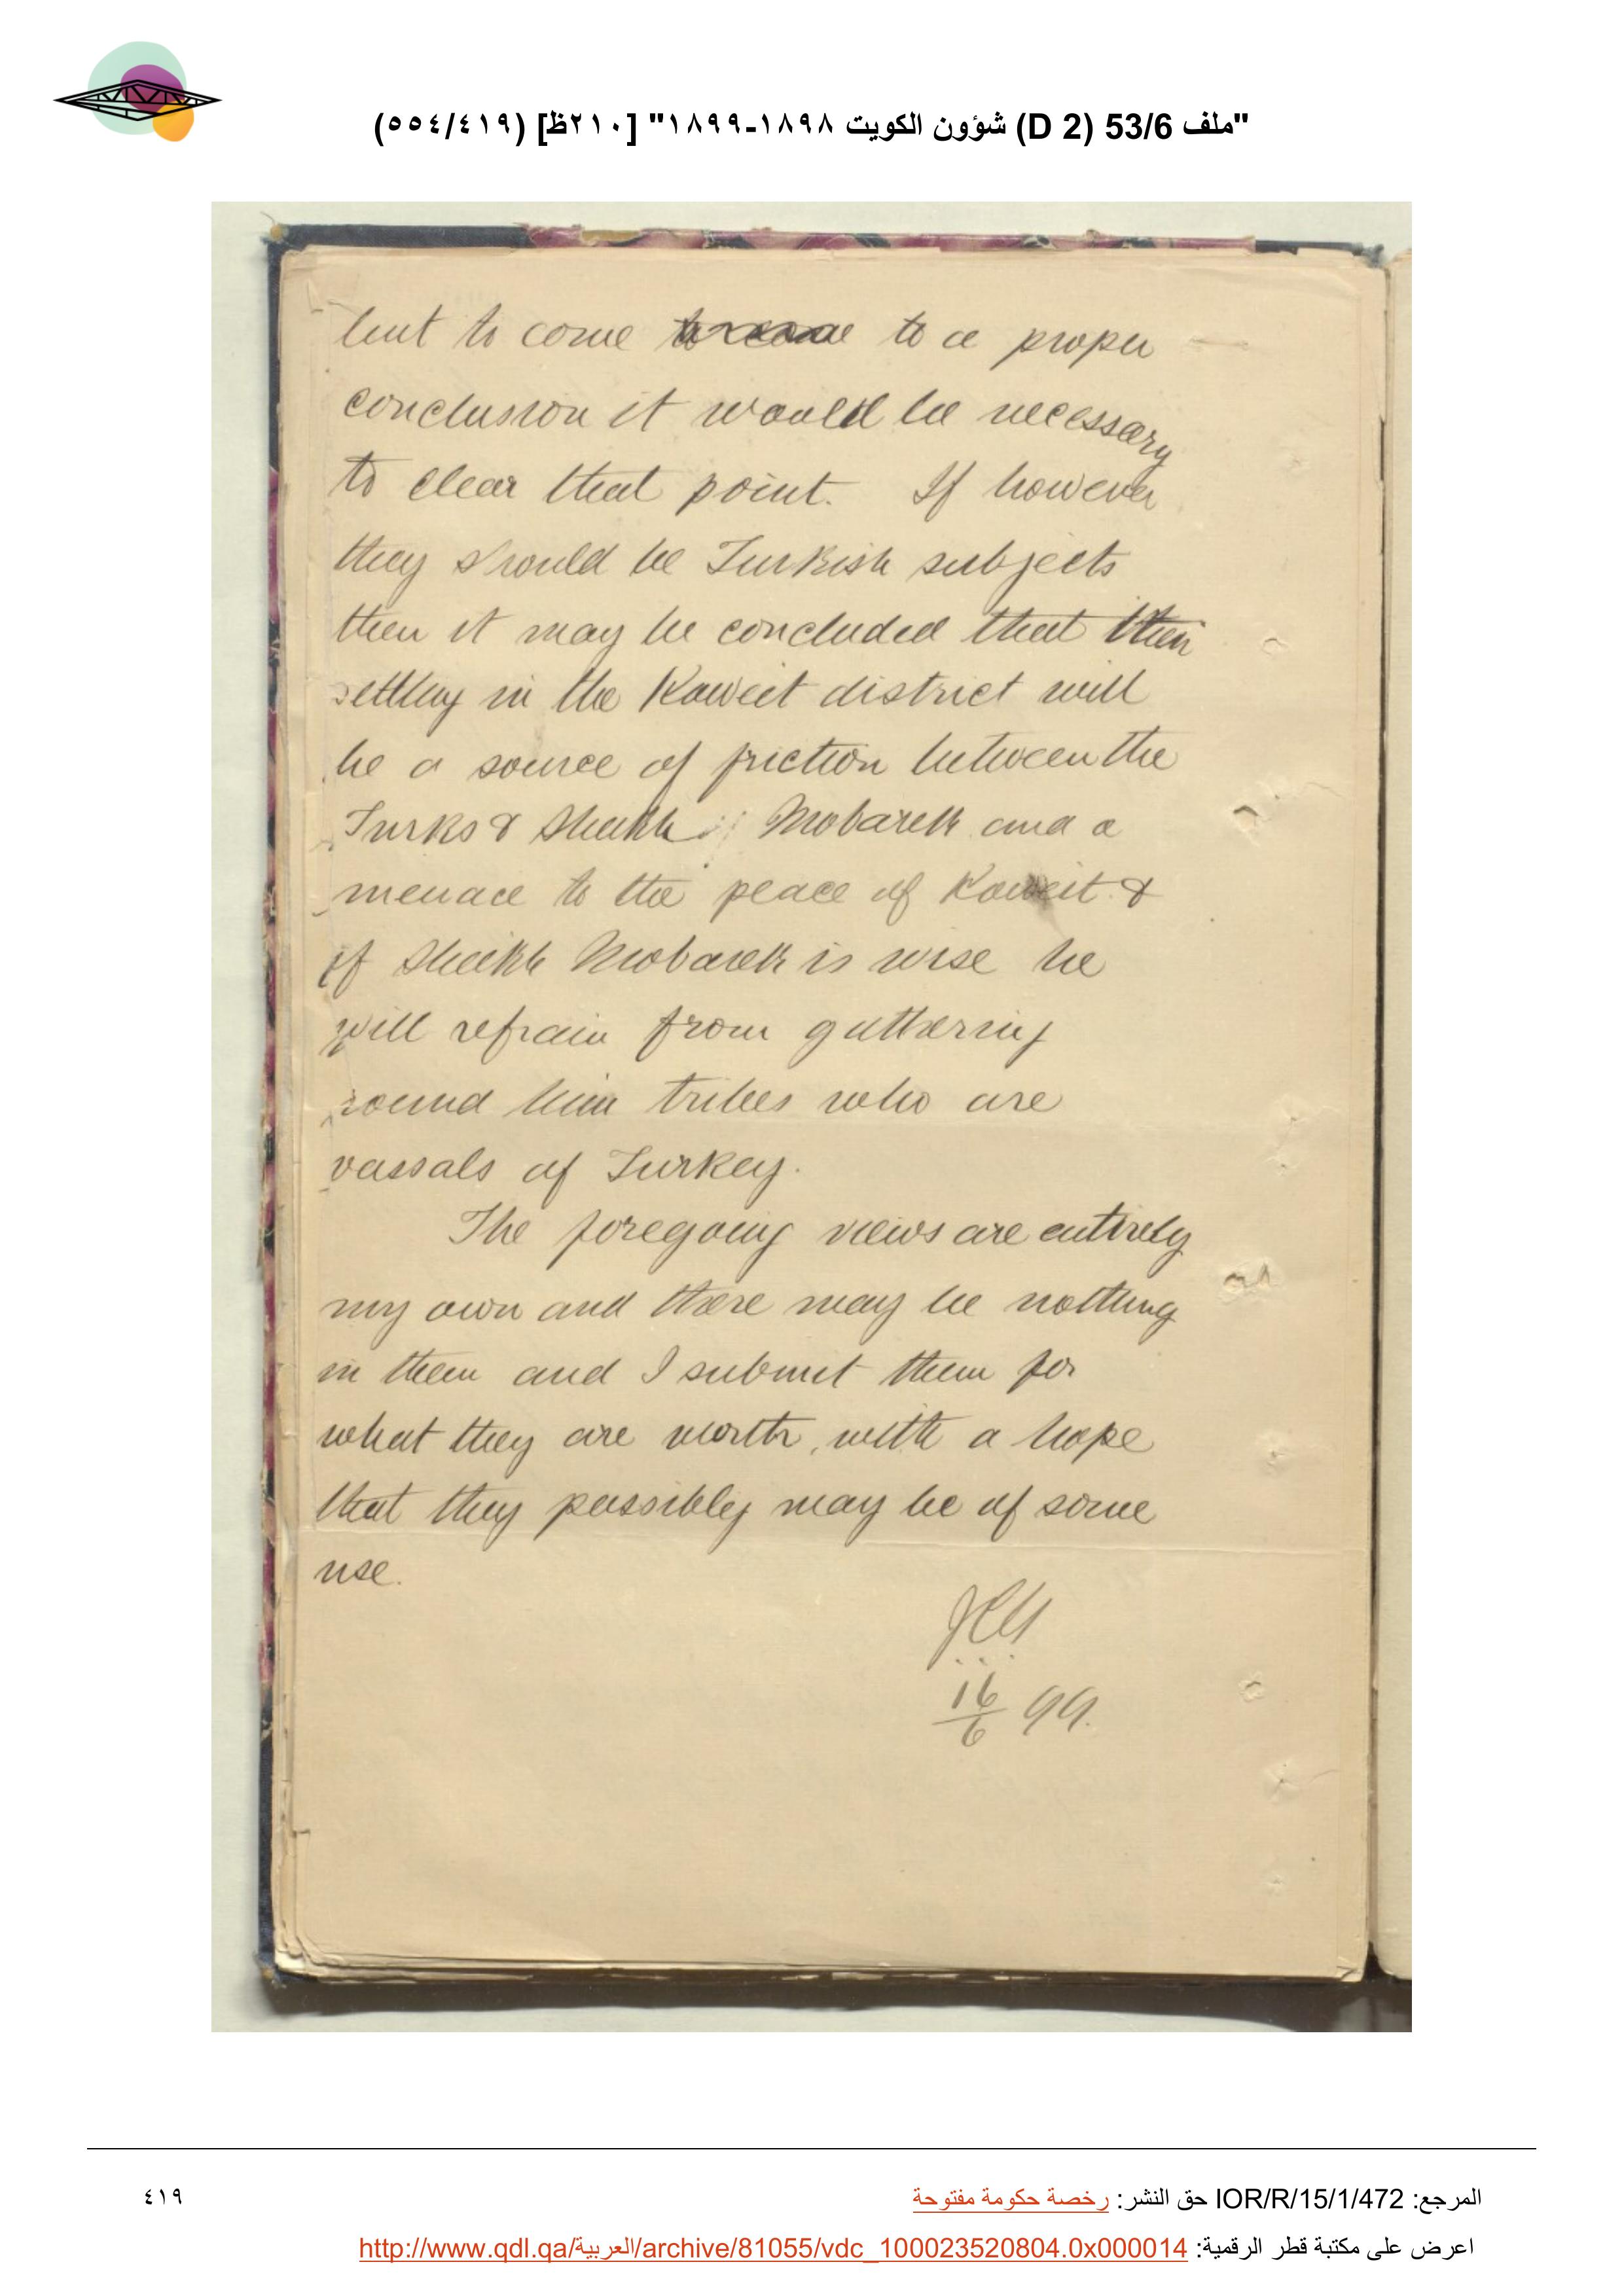 "ملف 53/6 (D 2) شؤون الكويت ١٨٩٨-١٨٩٩" [٢١٠ظ] (٥٥٤/٤١٩)
but to come to a proper
conclusion it would be necessary
to clear that point. If however
they should be Turkish subjects
then it may be concluded that their
settling in the Koweit district will
be a source of friction between the
Turks & Sheikh Mobarek and a
menace to the peace of Koweit &
if Sheikh Mobarek is wise he
will refrain from gathering
round him tribes who are
vassals of Turkey.
The foregoing views are entirely
my own and there may be nothing
in them and I submit them for
what they are worth, with a hope
that they possibly may be of some
use.
16/6 99.
المرجع: IOR/R/15/1/472 حق النشر: رخصة حكومة مفتوحة
٤١٩
اعرض على مكتبة قطر الرقمية: http://www.qdl.qa/العربية/archive/81055/vdc_100023520804.0x000014